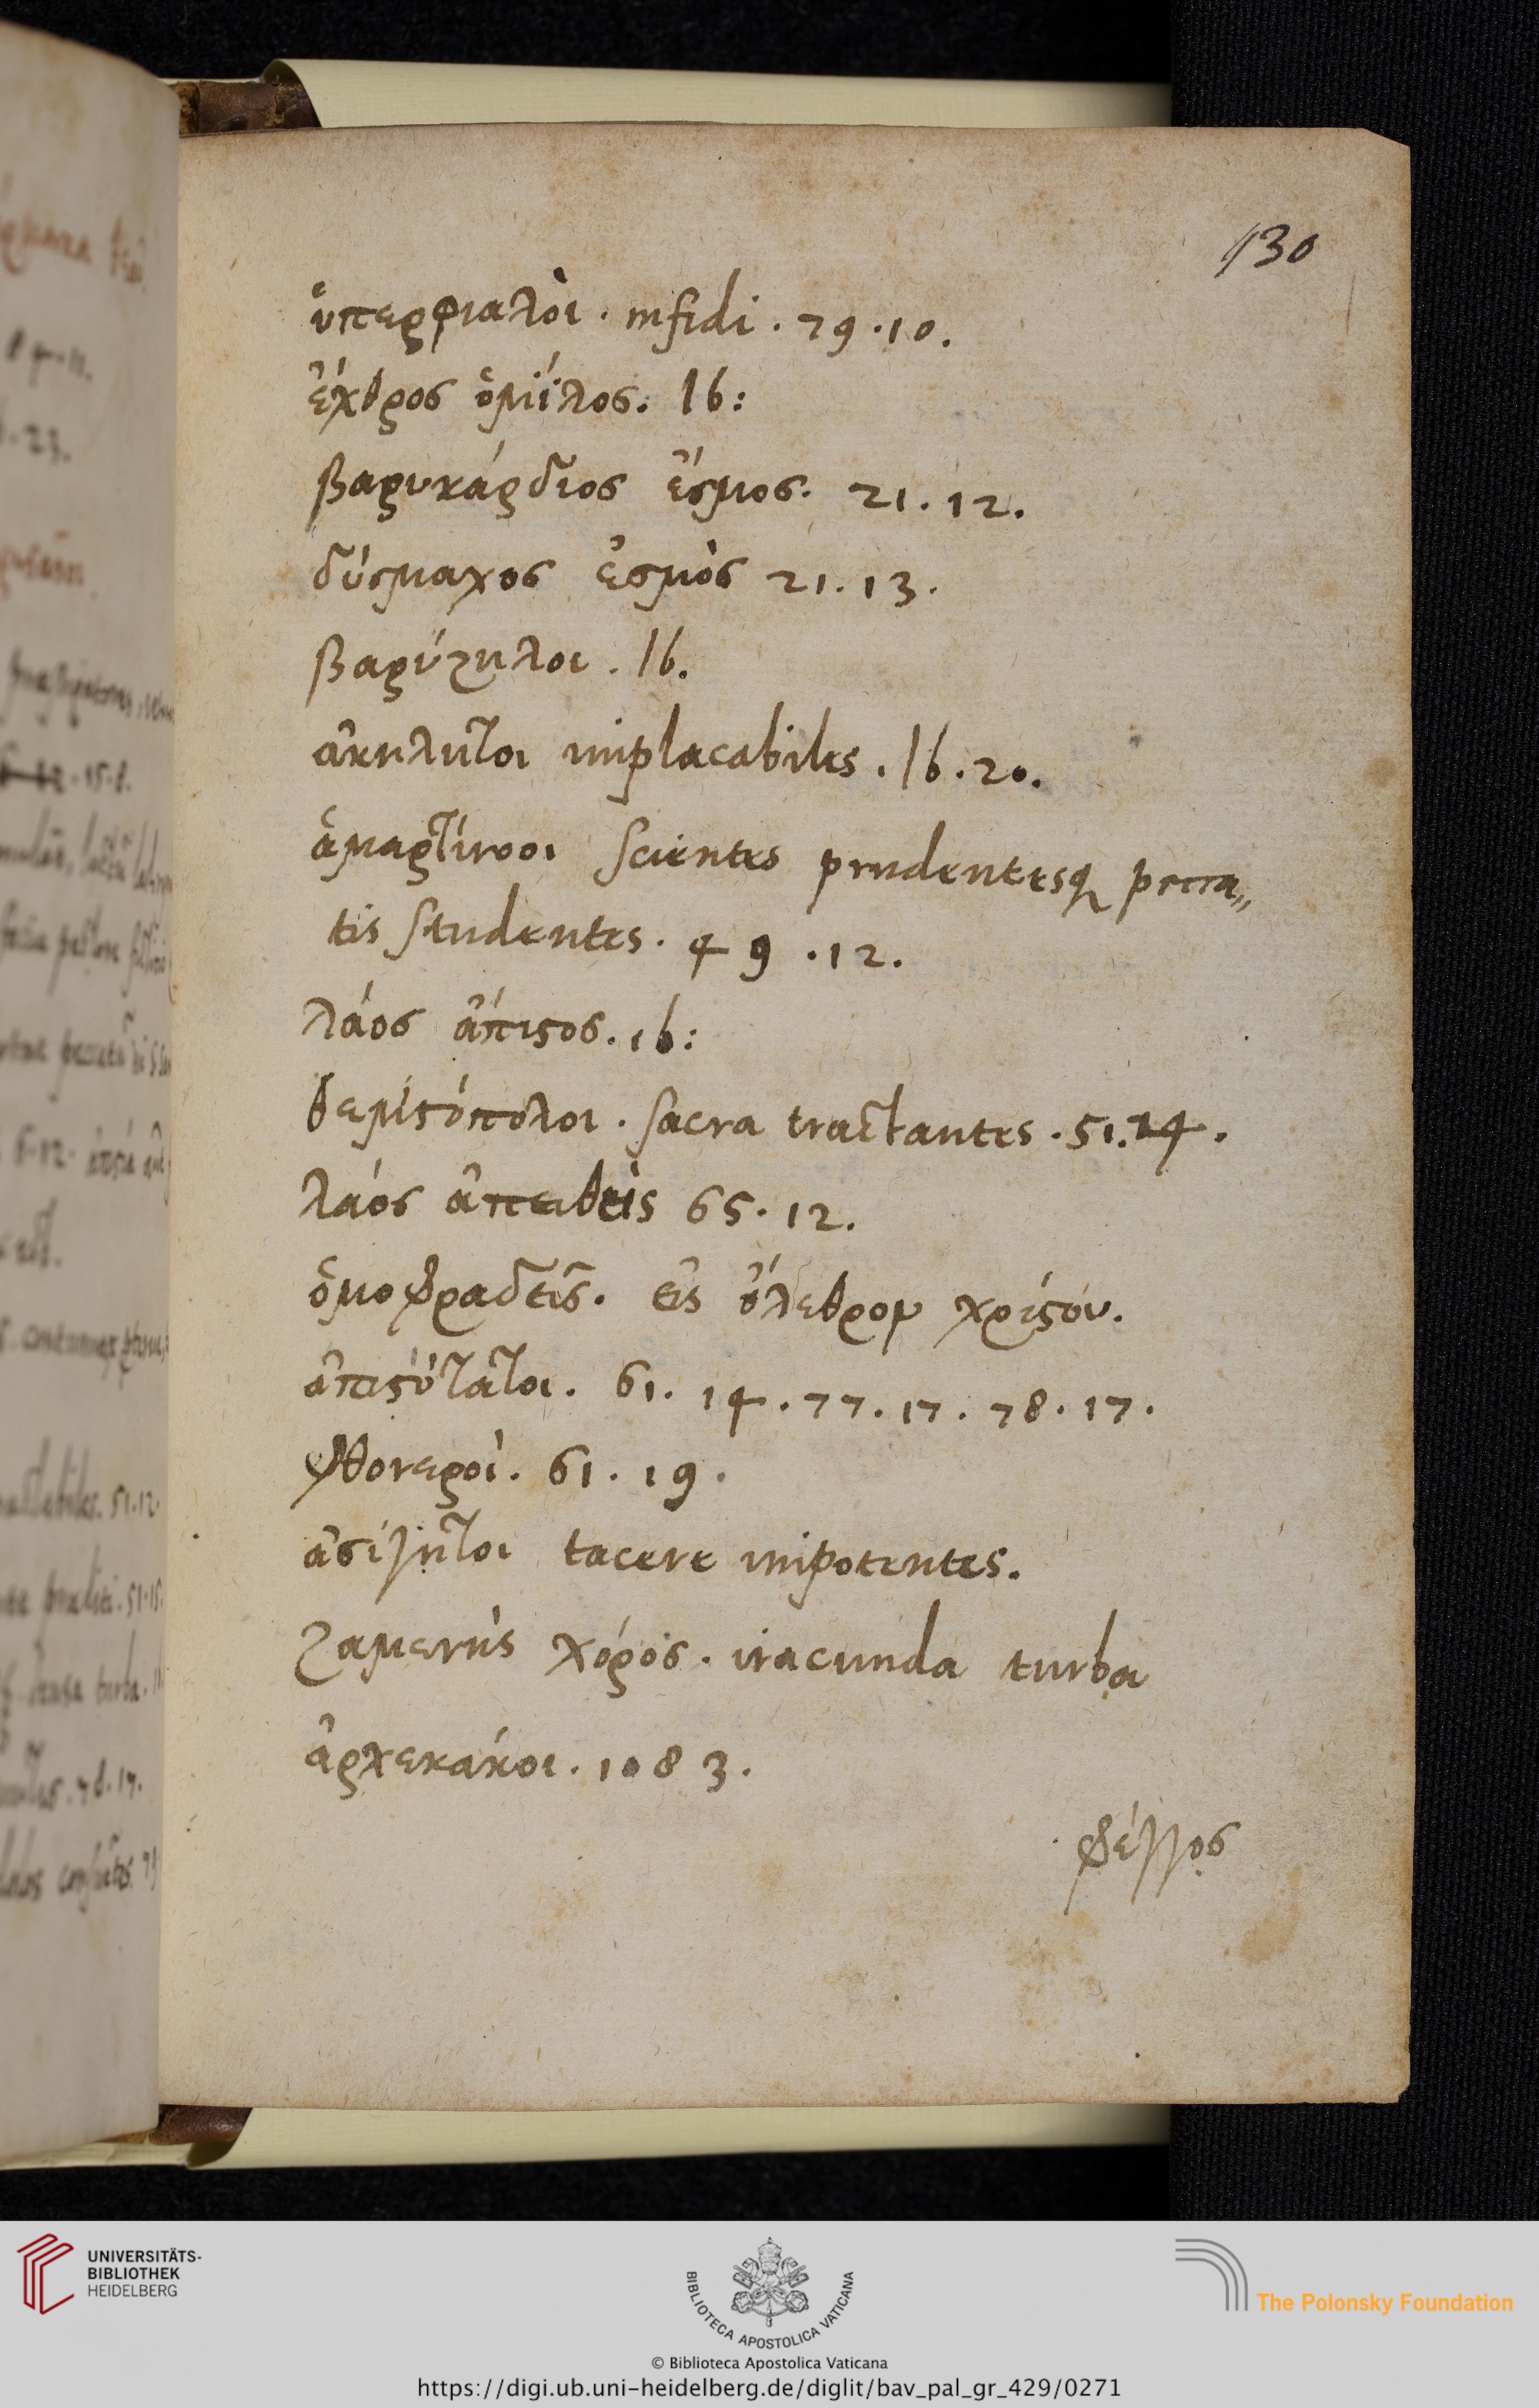 130
ὑπερφιαλὸι . infidi . 79 . 10 .
ἔχθρος ὁμίλος . Ib :
βαρυκάρδιος ἔσμος . 21 . 12 .
δύσμαχος ἐσμὸς 21 . 13 .
βαρύζηλοι . Ib .
ἀκηλητοι implacabiles . Ib . 20 .
ἁμαρτίνοοι scientes prudentesq pecca„
tis studentes . 49 . 12 .
λάος ἄπιϛος . ib :
θεμιϛόπολοι . sacra tractantes . 51 . 14 .
λαός ἀπειθεὶς 65 . 12 .
ὁμοφραδεῖς . εἰς ὄλεθρον χρίϛον .
ἀπιϛότατοι . 61 . 14 . 77 . 17 . 78 . 17 .
φθονεροὶ . 61 . 19 .
ἀσίγητοι tacere impotentes .
ζαμενὴς χόρος . iracunda turba
ἀρχεκακοι . 108 3 .
φέγγος
UNIVERSITÄTS-
BIBLIOTHEK
HEIDELBERG
BIBLIOTECA APOSTOLICA VATICANA
The Polonsky Foundation
© Biblioteca Apostolica Vaticana
https://digi.ub.uni-heidelberg.de/diglit/bav_pal_gr_429/0271